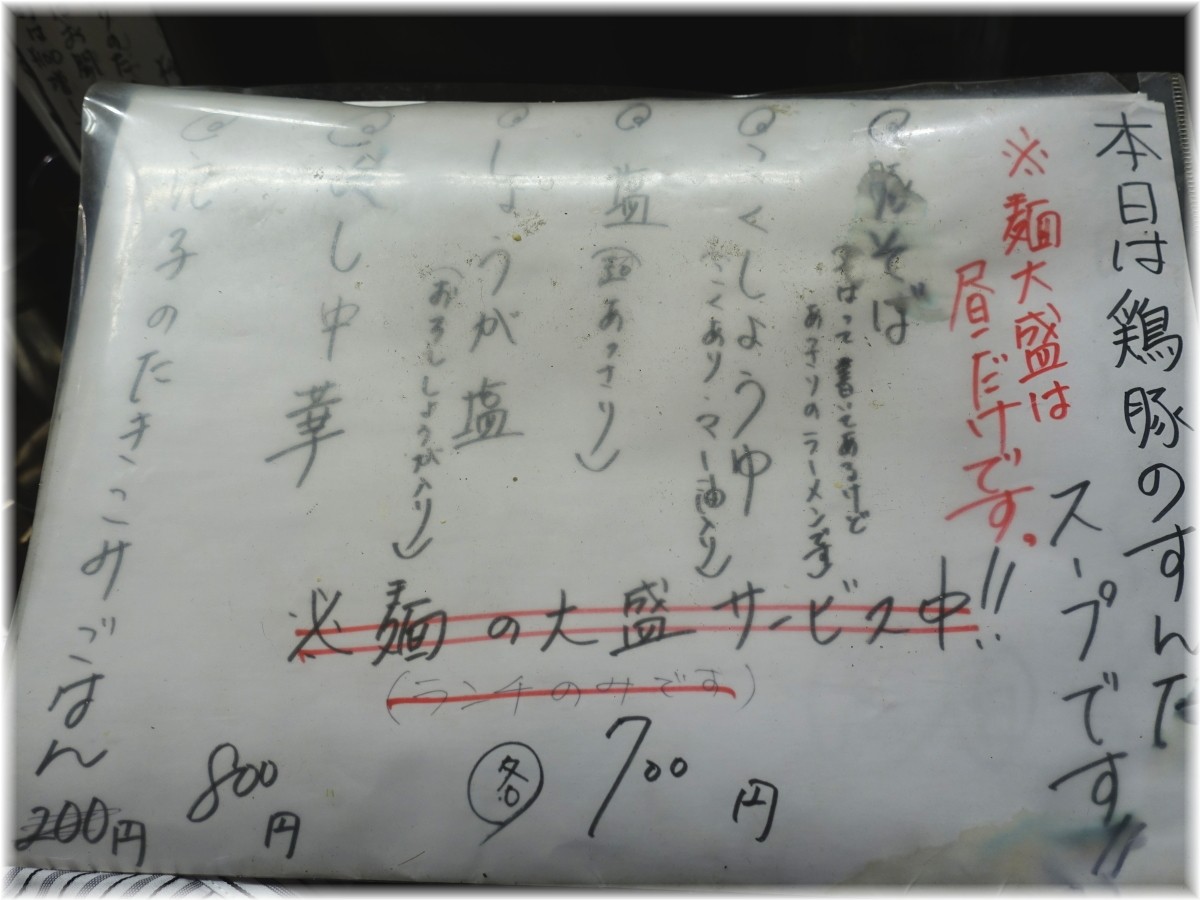 本日は鶏豚のすんだ
スープです!!
※麺大盛は
昼だけです。
豚そば
(そばって書いてあるけど
あっさりのラーメンです)
こくしょうゆ
(こくあり・マー油入り)
塩
(超あっさり)
しょうが塩
(おろししょうが入り)
冷し中華
子のたきこみごはん
※麺の大盛サービス中!!
(ランチのみです)
各700円
800円
200円